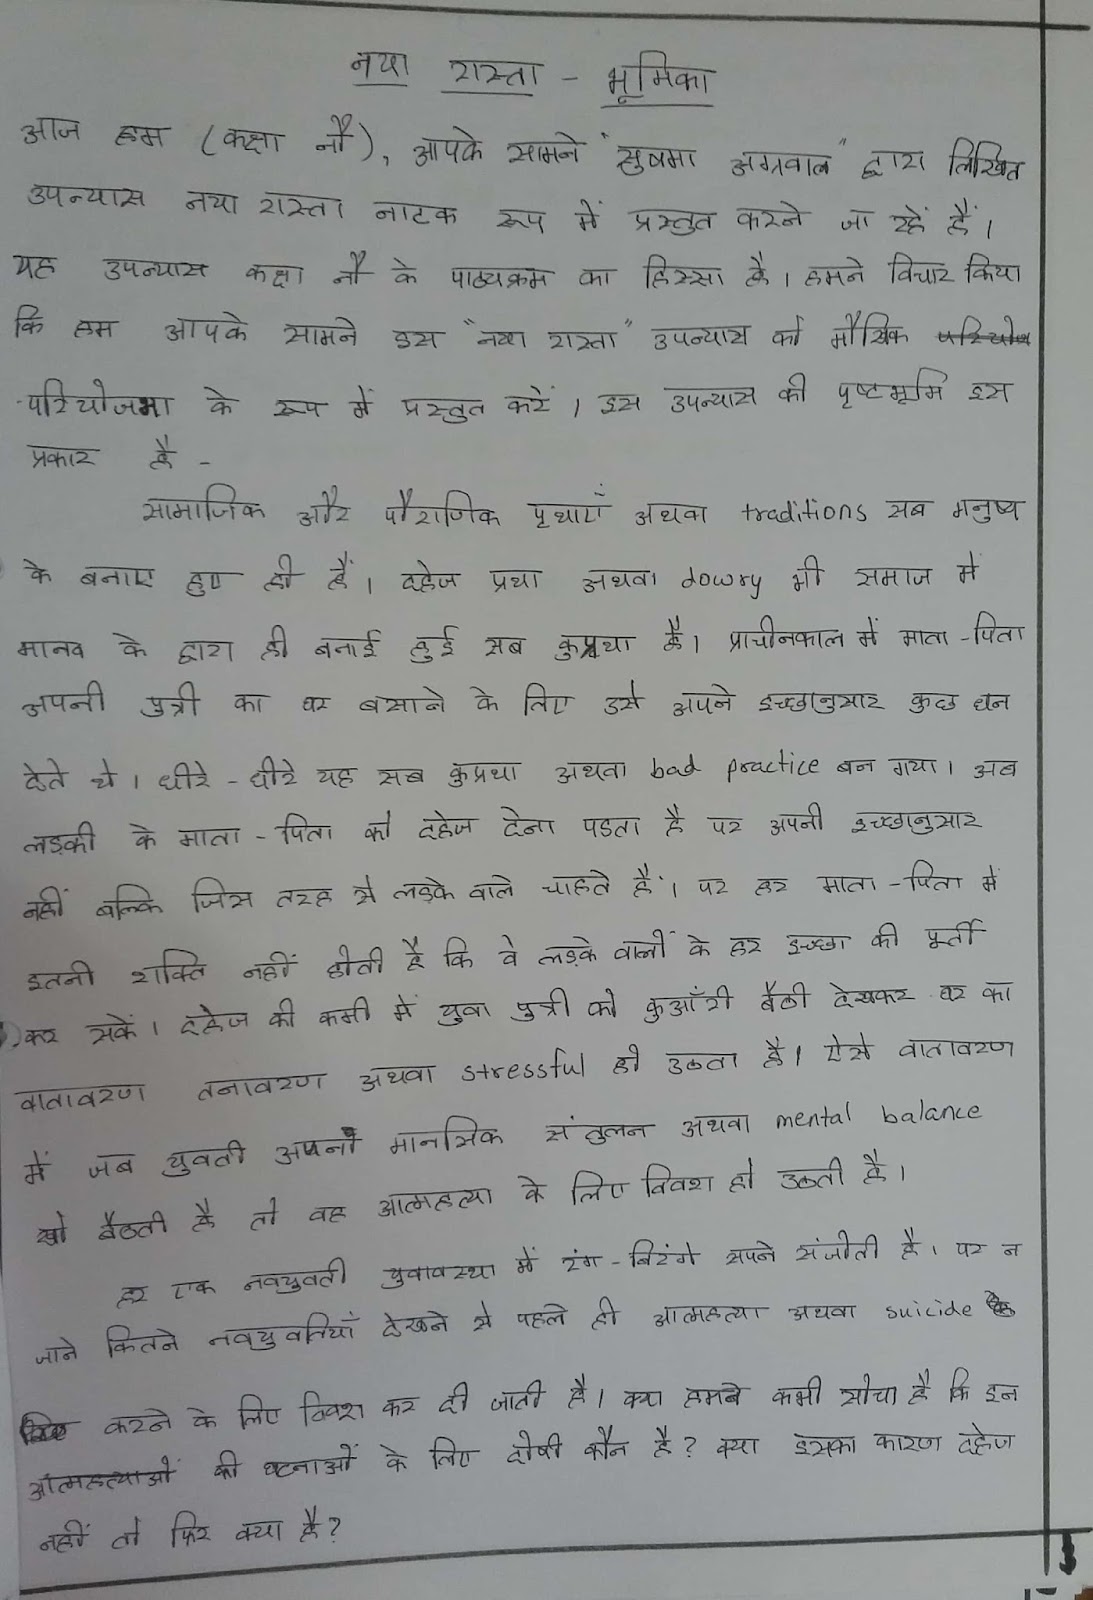 नया रास्ता - भूमिका
आज हम (कक्षा नौ), आपके सामने "सुषमा अग्रवाल" द्वारा लिखित
उपन्यास नया रास्ता नाटक रूप में प्रस्तुत करने जा रहें हैं।
यह उपन्यास कक्षा नौ के पाठ्यक्रम का हिस्सा है। हमने विचार किया
कि हम आपके सामने इस "नया रास्ता" उपन्यास को मौखिक
परियोजना के रूप में प्रस्तुत करें। इस उपन्यास की पृष्टभूमि इस
प्रकार है -
सामाजिक और पौराणिक पृथाएँ अथवा traditions सब मनुष्य
के बनाए हुए ही हैं। दहेज प्रथा अथवा dowry भी समाज में
मानव के द्वारा ही बनाई हुई सब कुप्रथा है। प्राचीनकाल में माता-पिता
अपनी पुत्री का घर बसाने के लिए उसे अपने इच्छानुसार कुछ धन
देते थे। धीरे-धीरे यह सब कुप्रथा अथवा bad practice बन गया। अब
लड़की के माता-पिता को दहेज देना पडता है पर अपनी इच्छानुसार
नहीं बल्कि जिस तरह से लड़के वाले चाहते हैं। पर हर माता-पिता में
इतनी शक्ति नहीं होती है कि वे लड़के वालों के हर इच्छा की पूर्ती
कर सकें। दहेज की कमी में युवा पुत्री को कुआँरी बैठी देखकर घर का
वातावरण तनावरण अथवा stressful हो उठता है। ऐसे वातावरण
में जब युवती अपना मानसिक संतुलन अथवा mental balance
खो बैठती है तो वह आत्महत्या के लिए विवश हो उठती है।
हर एक नवयुवती युवावस्था में रंग-बिरंगे सपने संजोती है। पर न
जाने कितने नवयुवतियाँ देखने से पहले ही आत्महत्या अथवा suicide
करने के लिए विवश कर दी जाती है। क्या हमने कभी सोचा है कि इन
आत्महत्याओं की घटनाओं के लिए दोषी कौन है? क्या इसका कारण दहेज
नहीं तो फिर क्या है?